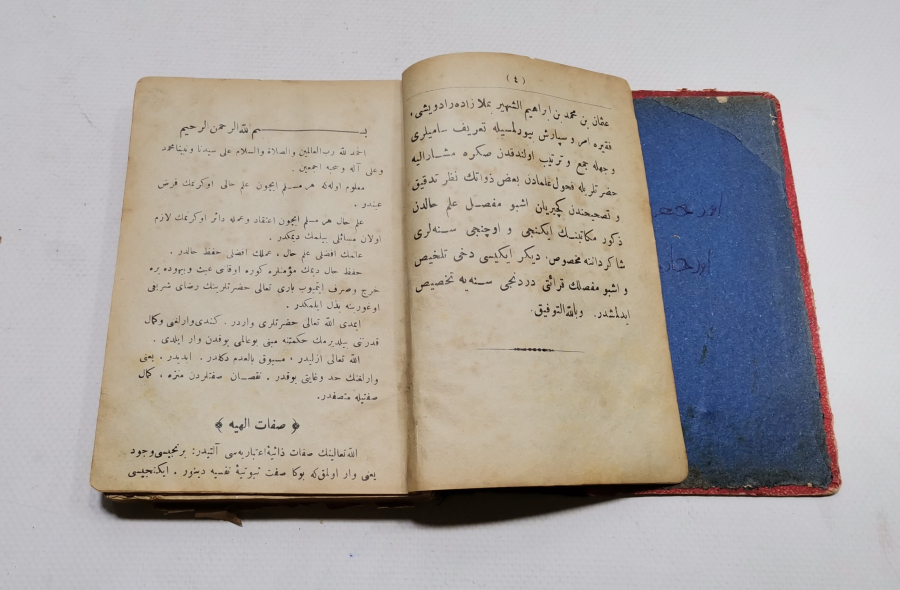 (٤)
عثمان بن محمد بن ابراهيم الشهير بملا زاده رادويشى ،
فقيره امر و سپارش بيورلمسيله تعريف ساميلرى
وجهله جمع و ترتيب اولندقدن صكره مشاراليه
حضرتلريله فحول علمادن بعض ذواتك نظر تدقيق
و تصحيحندن كچيريلن اشبو مفصل علم حالدن
ذكور مكاتبنك ايكنجى و اوچنجى سنه‌لرى
شاكرداننه مخصوص ديكر ايكيسى دخى تلخيص
و اشبو مفصلك قرائتى دردنجى سنه‌يه تخصيص
ايدلمشدر. وبالله التوفيق.
بسم الله الرحمن الرحيم
الحمد لله رب العالمين والصلاة والسلام على سيدنا ونبينا محمد
وعلى آله وصحبه اجمعين .
معلوم اوله‌كه هر مسلم ايچون علم حالى اوكرنمك فرض
عيندر .
علم حال هر مسلم ايچون اعتقاد وعمله دائر اوكرنمك لازم
اولان مسائلى بيلمك ديمكدر .
علمك افضلى علم حال ، عملك افضلى حفظ حالدر .
حفظ حال ديمك مؤمنلره كوره اوقاتى عبث وبيهوده يره
خرج وصرف ايتميوب بارى تعالى حضرتلرينك رضاى شريفى
اوغورينه بذل ايلمكدر .
ايمدى الله تعالى حضرتلرى واردر . كندى وارلغنى وكمال
قدرتنى بيلديرمك حكمتنه مبنى بوعالمى يوقدن وار ايلدى .
الله تعالى ازليدر ، مسبوق بالعدم دكلدر . ابديدر . يعنى
وارلغنك حد وغايتى يوقدر . نقصان صفتلردن منزه ، كمال
صفتيله متصفدر.
﴿ صفات الهيه ﴾
الله تعالينك صفات ذاتيۀ اعتباريه‌سى آلتيدر: برنجيسى وجود
يعنى وار اولمق كه بوكا صفت ثبوتيۀ نفسيه دينور . ايكنجيسى